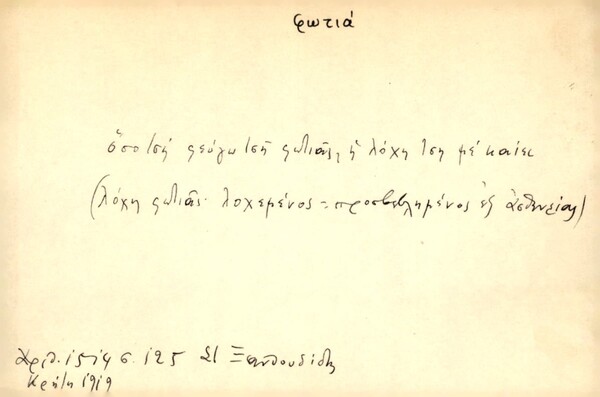 φωτιά
ὅσο τσῆ φεύγω τσῆ φωτιᾶς, ἡ λόχη τση μέ καίει
(λόχη φωτιᾶς· λοχεμένος = προσβεβλημένος ἐξ ἀσθενείας)
Χριθ. 1514 σ. 125 Στ Ξανθουδίδης
Κρήτη 1919